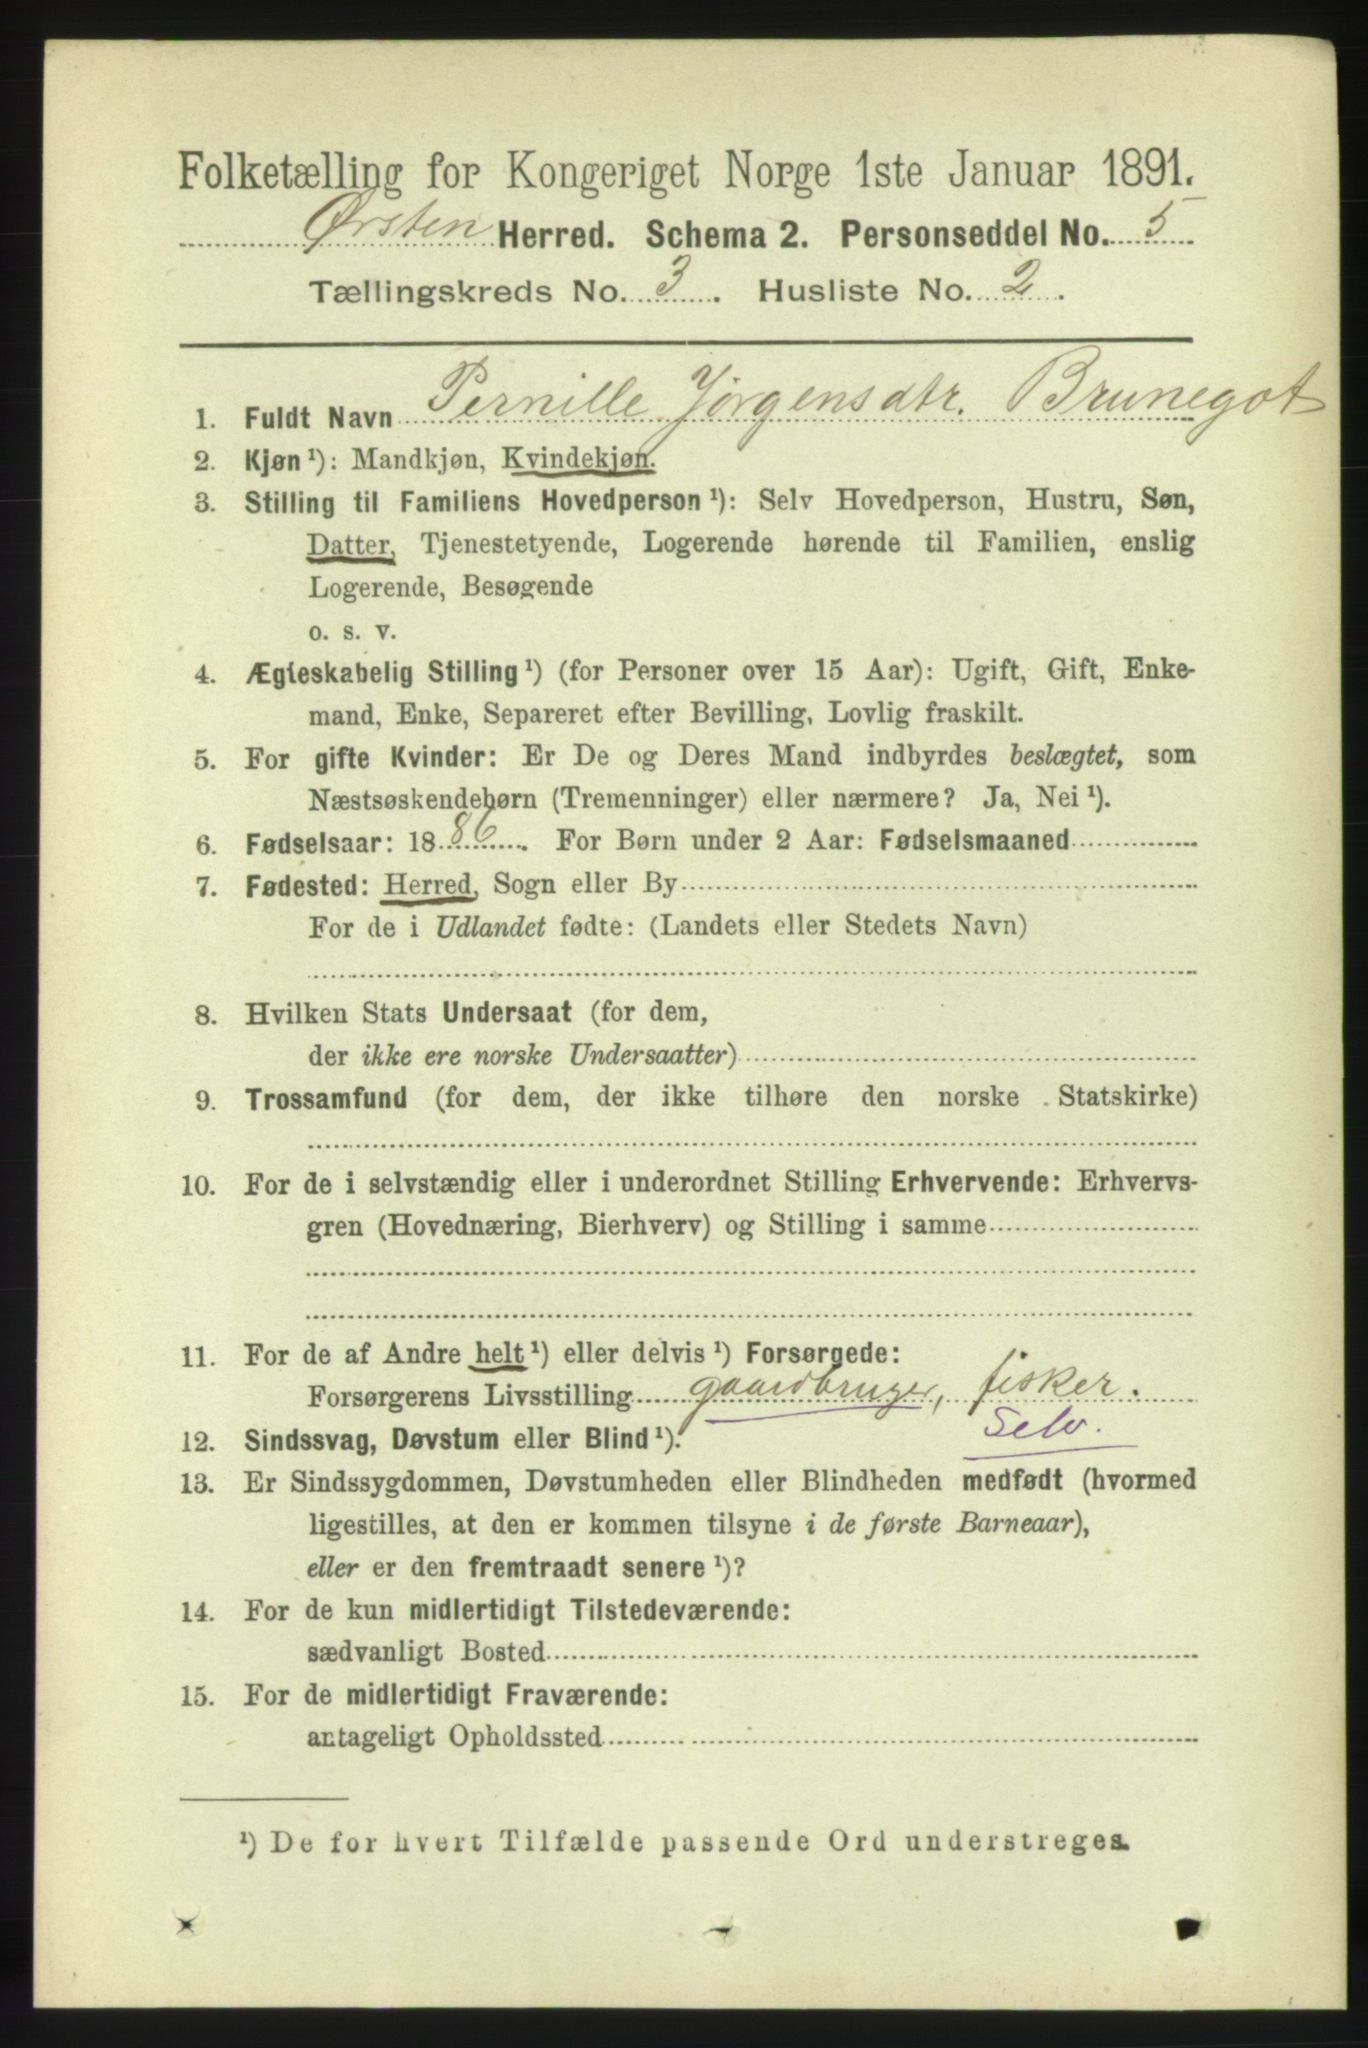 Folketælling for Kongeriget Norge 1ste Januar 1891.
Ørsten Herred. Schema 2. Personseddel No. 5
Tællingskreds No. 3. Husliste No. 2.
1. Fuldt Navn Pernille Jørgensdtr. Brunegot
2. Kjøn ¹): Mandkjøn, Kvindekjøn.
3. Stilling til Familiens Hovedperson ¹): Selv Hovedperson, Hustru, Søn,
Datter, Tjenestetyende, Logerende hørende til Familien, enslig
Logerende, Besøgende
o. s. v.
4. Ægteskabelig Stilling ¹) (for Personer over 15 Aar): Ugift, Gift, Enke-
mand, Enke, Separeret efter Bevilling, Lovlig fraskilt.
5. For gifte Kvinder: Er De og Deres Mand indbyrdes beslægtet, som
Næstsøskendebørn (Tremenninger) eller nærmere? Ja, Nei ¹).
6. Fødselsaar: 1886. For Børn under 2 Aar: Fødselsmaaned
7. Fødested: Herred, Sogn eller By
For de i Udlandet fødte: (Landets eller Stedets Navn)
8. Hvilken Stats Undersaat (for dem,
der ikke ere norske Undersaatter)
9. Trossamfund (for dem, der ikke tilhøre den norske Statskirke)
10. For de i selvstændig eller i underordnet Stilling Erhvervende: Erhvervs-
gren (Hovednæring, Bierhverv) og Stilling i samme
11. For de af Andre helt ¹) eller delvis ¹) Forsørgede:
Forsørgerens Livsstilling gaardbruger, fisker.
Selv.
12. Sindssvag, Døvstum eller Blind ¹).
13. Er Sindssygdommen, Døvstumheden eller Blindheden medfødt (hvormed
ligestilles, at den er kommen tilsyne i de første Barneaar),
eller er den fremtraadt senere ¹)?
14. For de kun midlertidigt Tilstedeværende:
sædvanligt Bosted
15. For de midlertidigt Fraværende:
antageligt Opholdssted
¹) De for hvert Tilfælde passende Ord understreges.